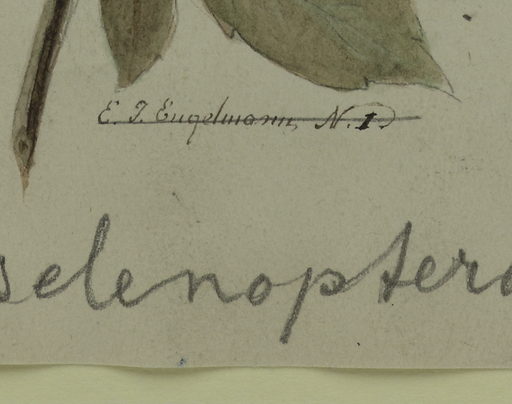 E. J. Engelmann, N. 1.
selenoptera